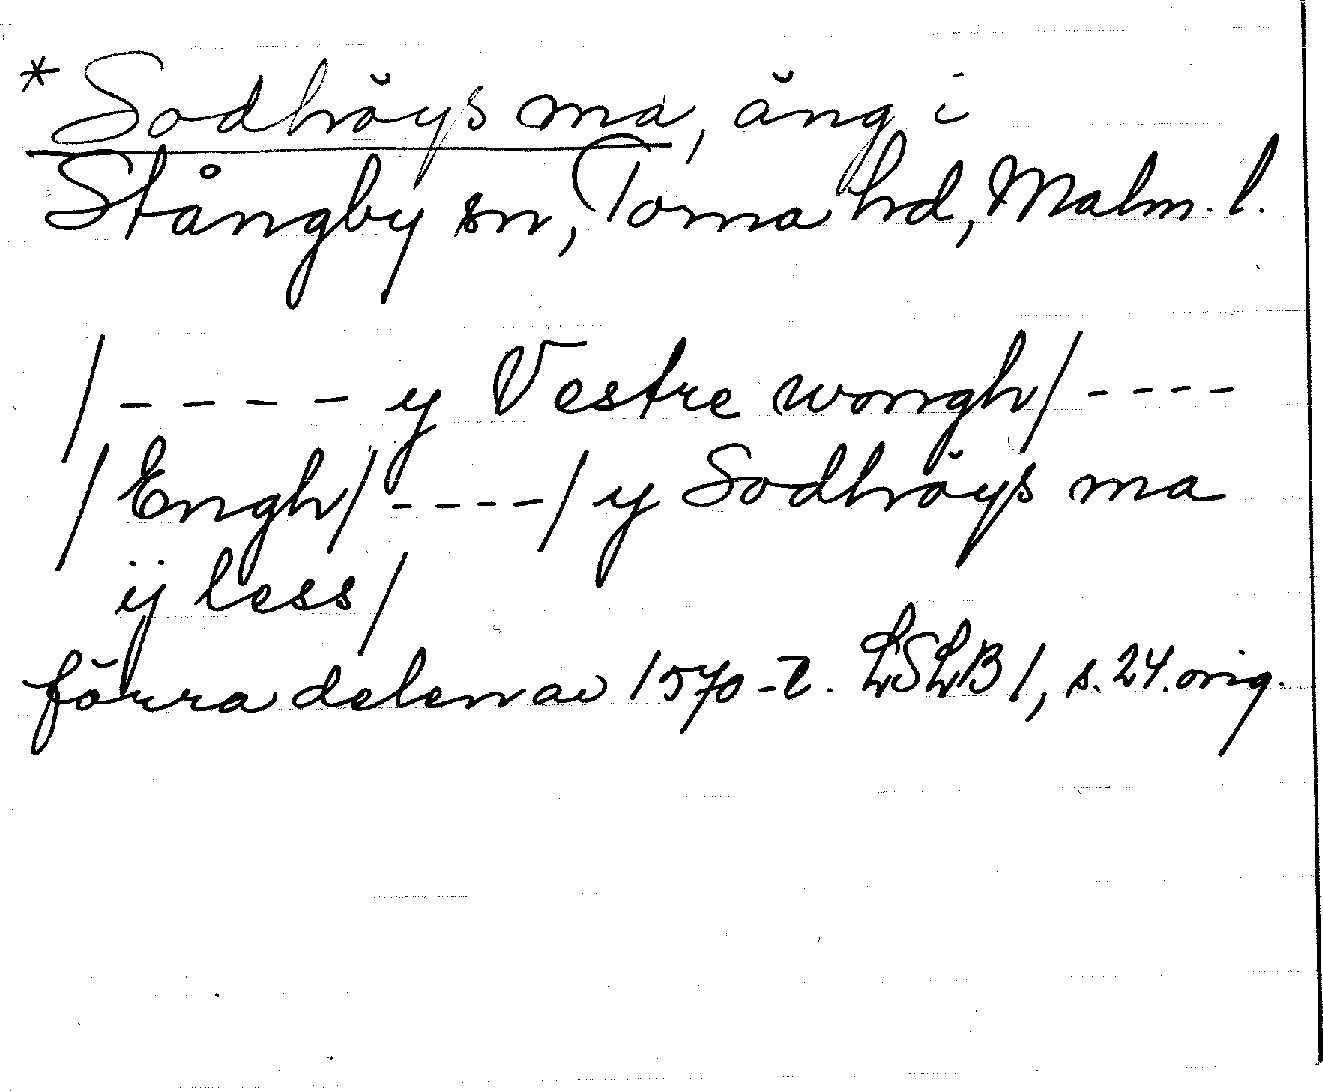 * Sodhröys ma, äng i
Stångby sn, Torna hd, Malm. l.
/ - - - - y Vestre wongh / - - - -
/ Engh / - - - - / y Sodhröys ma
ij less /
förra delen av 1570-t. LSLB 1, s. 24. orig.